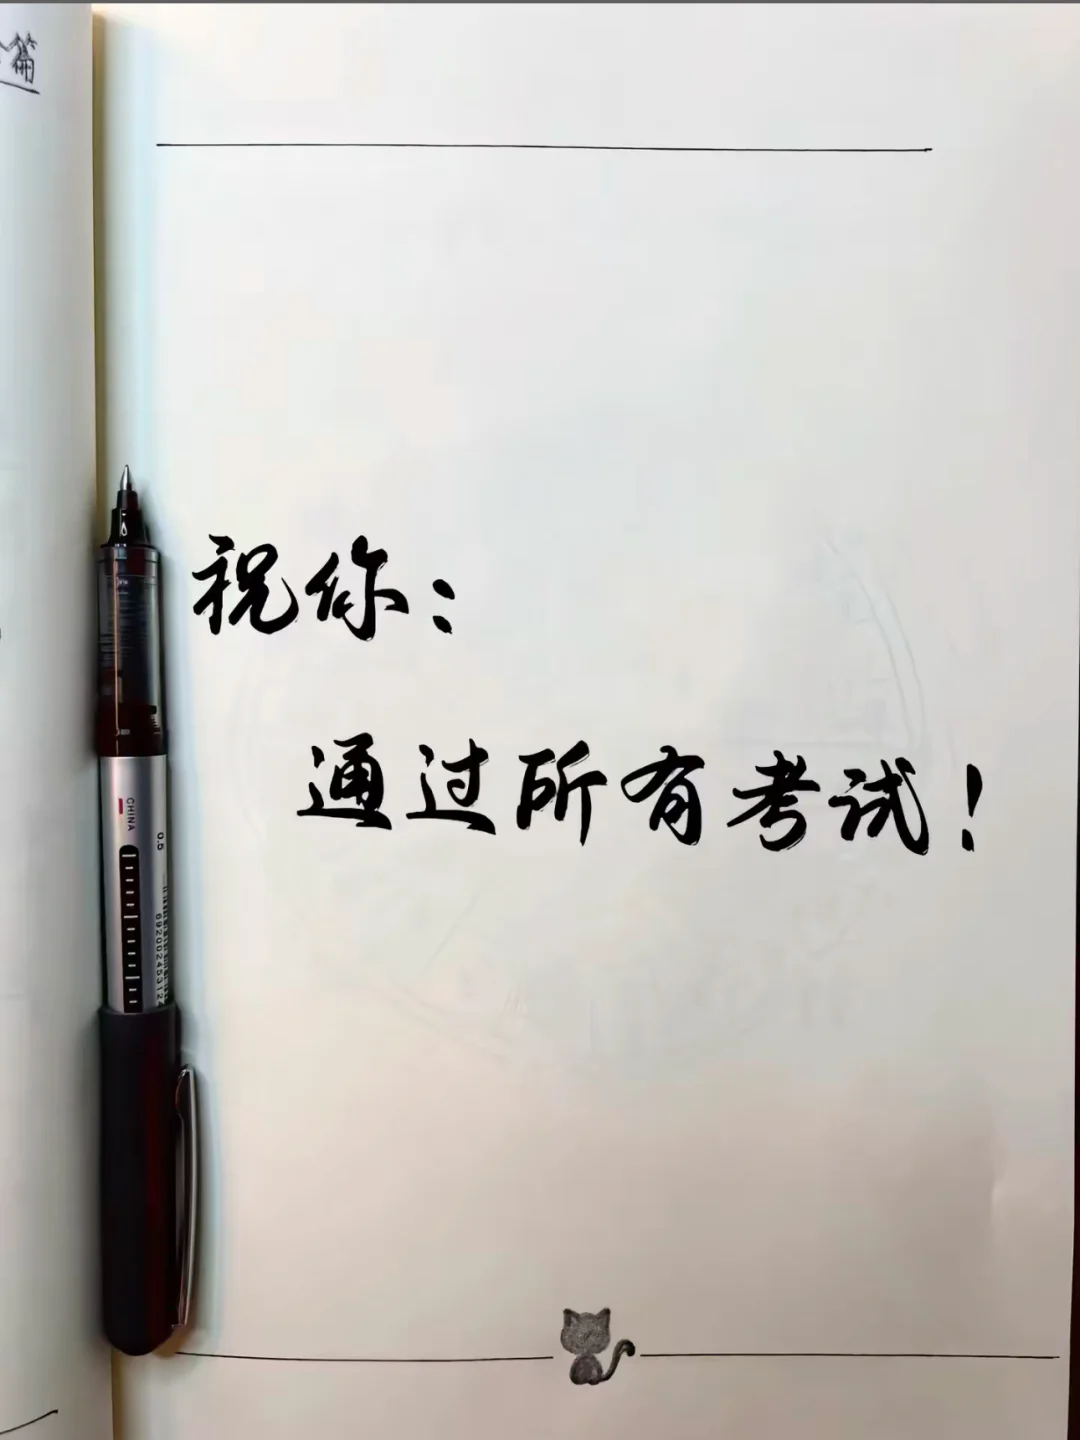 篇
祝你：
通过所有考试！
CHINA
0.5